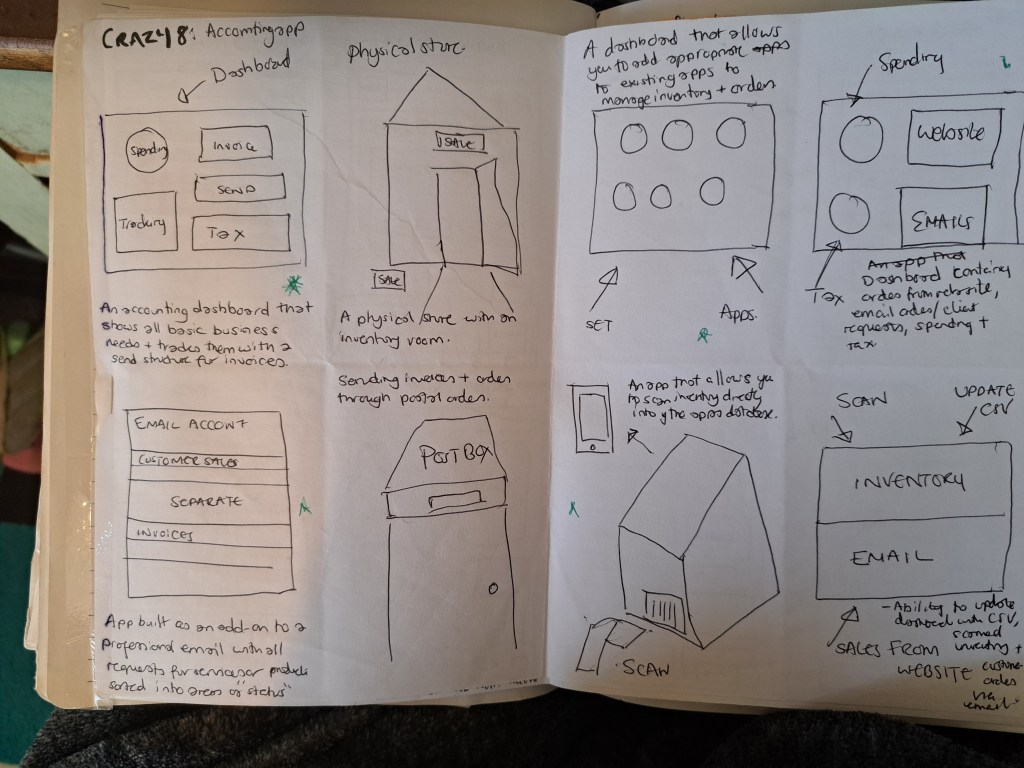 CRAZY 8: Accounting app
Dashboard
Spending
Invoice
SEND
Tracking
Tax
An accounting dashboard that
shows all basic business
needs + tracks them with a
send structure for invoices.
physical store.
SALE
SALE
A physical store with an
inventory room.
A dashboard that allows
you to add appropriate apps
to existing apps to
manage inventory + orders
SET
Apps.
Spending
Website
EMAILS
Tax
An app that
Dashboard containing
orders from website,
email orders/client
requests, spending +
tax.
EMAIL ACCONT
CUSTOMER SALES
SEPARATE
INVOICES
App built as an add-on to a
professional email with all
requests for services or products
sorted into areas of "status"
Sending invoices + order
through postal orders.
POST BOX
An app that allows you
to scan inventory directly
into the apps database.
SCAN
SCAN
UPDATE
CSV
INVENTORY
EMAIL
SALES FROM
WEBSITE
- Ability to update
dashboard with CSV,
scanned
inventory +
customer
orders
via
email.